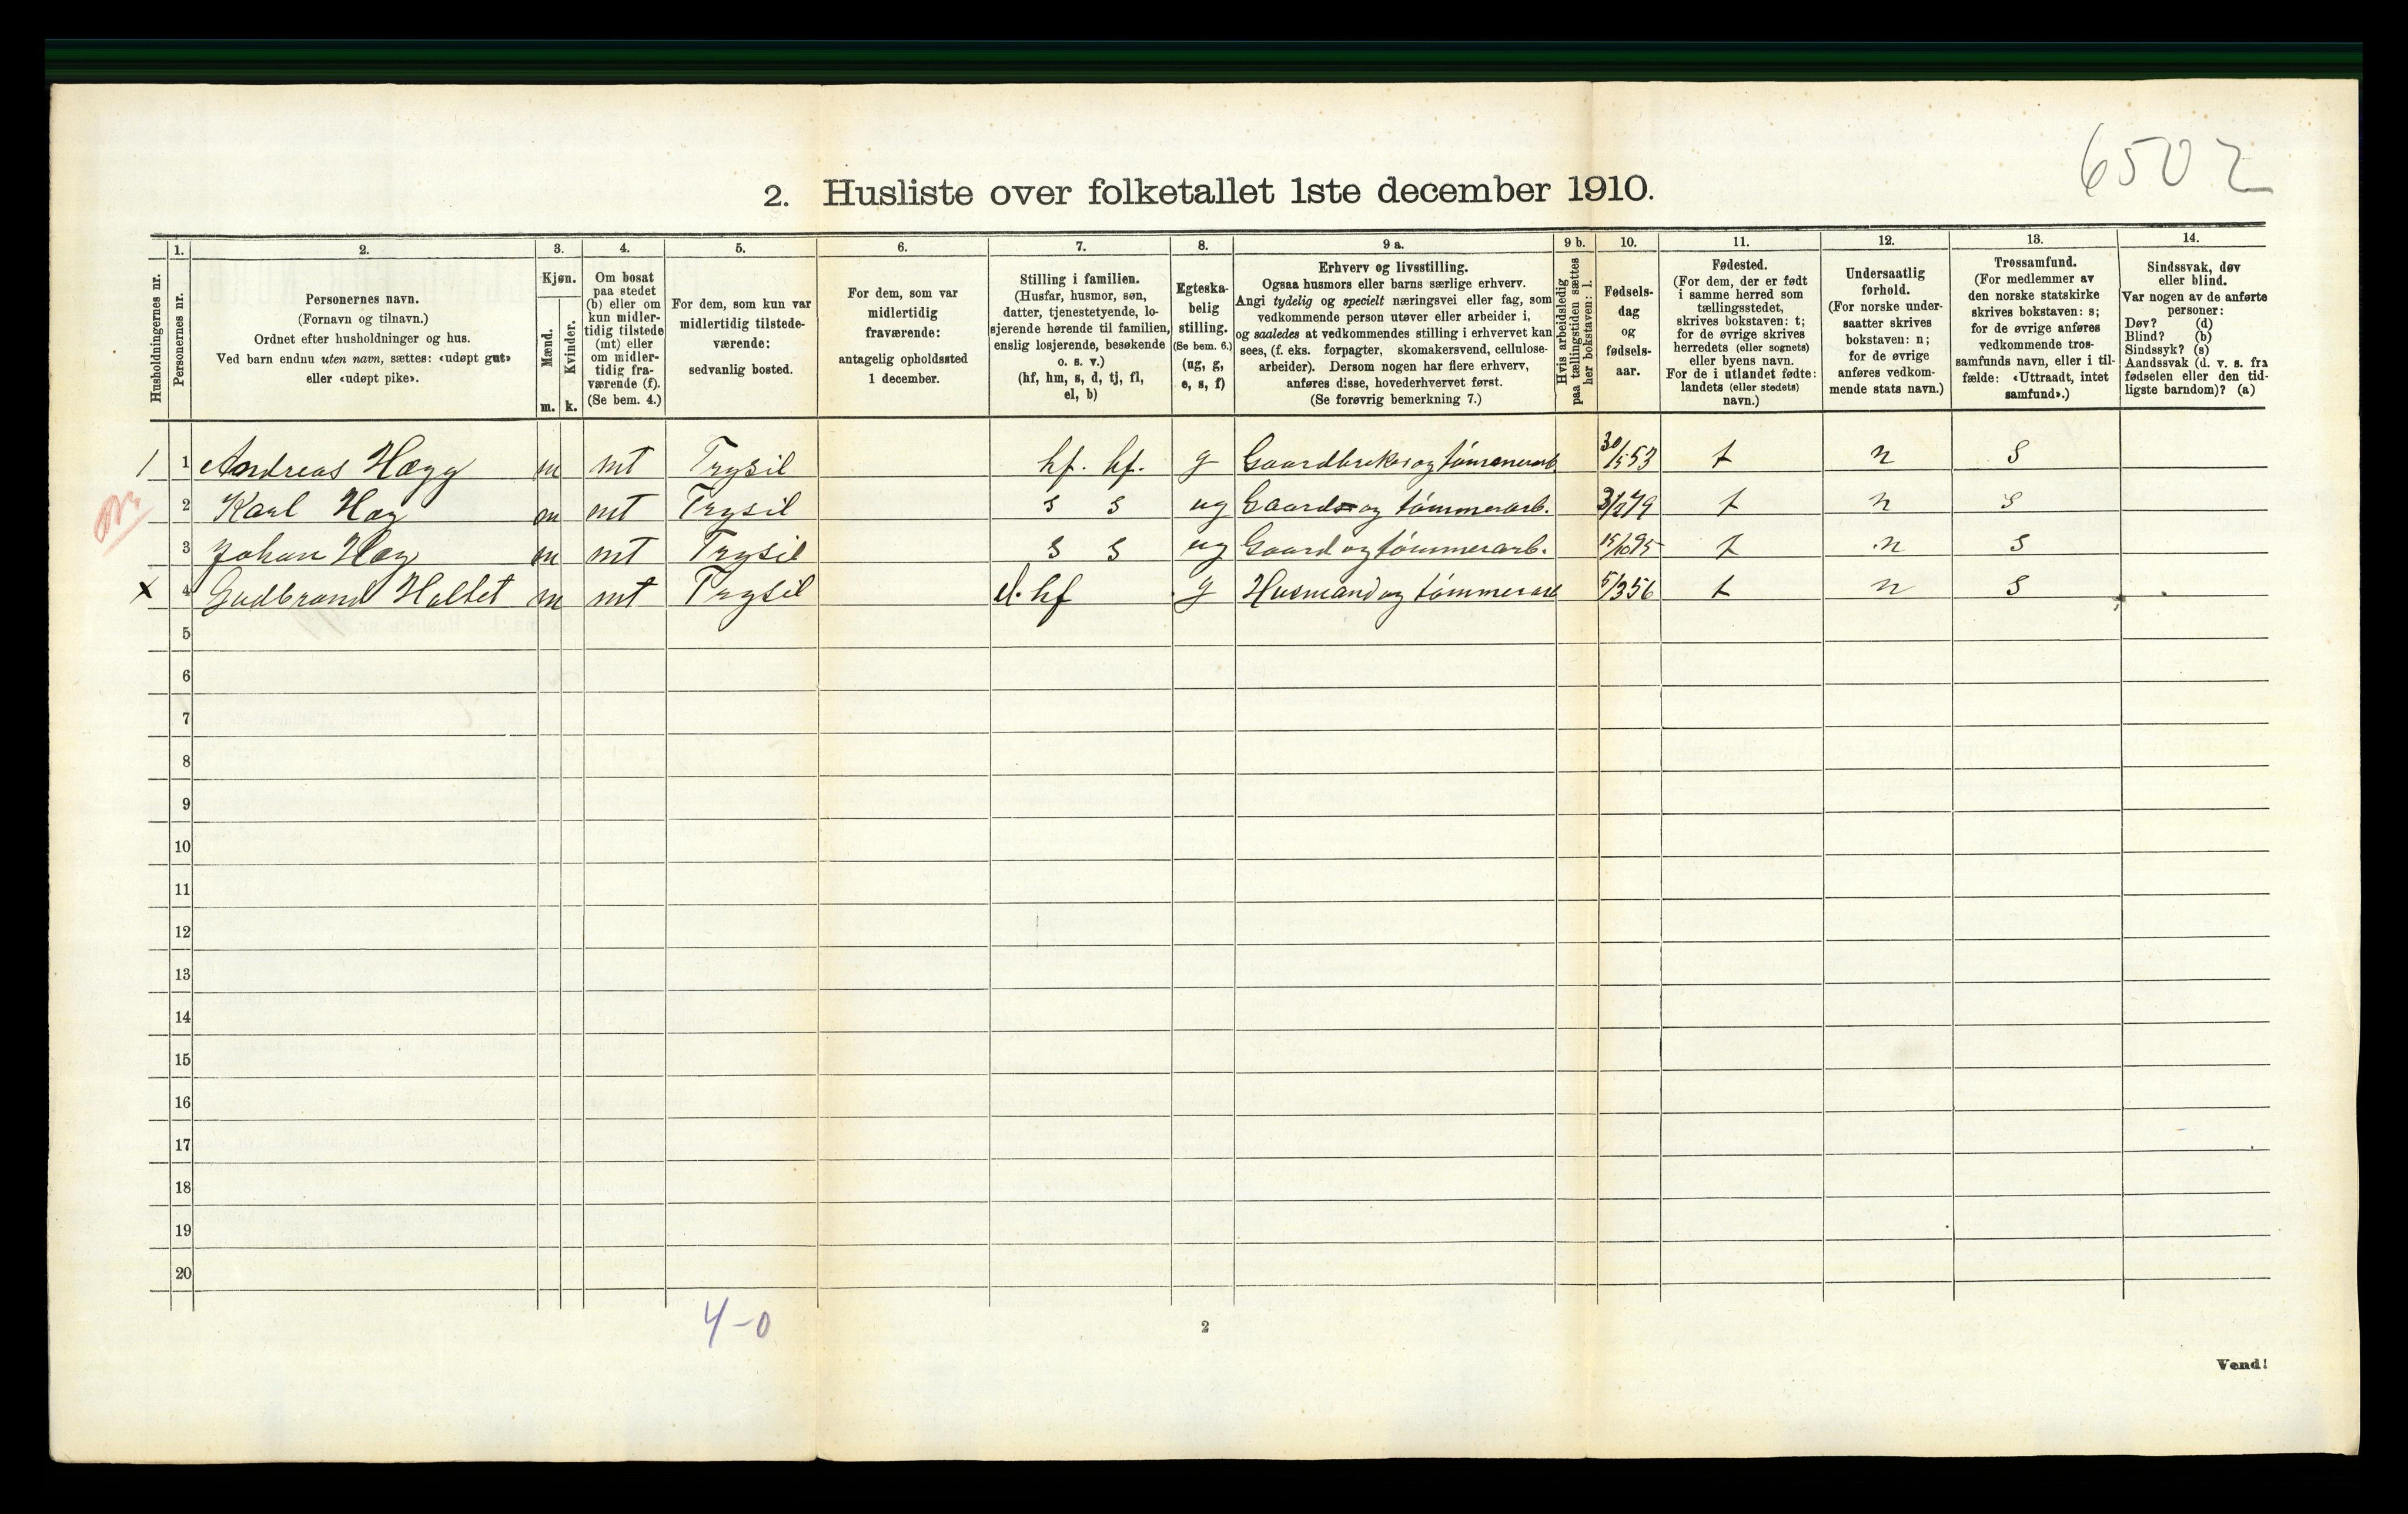 6502
2. Husliste over folketallet 1ste december 1910.
Husholdningernes nr.
1. Personernes nr.
2. Personernes navn. (Fornavn og tilnavn.) Ordnet efter husholdninger og hus. Ved barn endnu uten navn, sættes: «udøpt gut» eller «udøpt pike».
3. Kjøn. Mænd. m. Kvinder. k.
4. Om bosat paa stedet (b) eller om kun midlertidig tilstede (mt) eller om midlertidig fraværende (f). (Se bem. 4.)
5. For dem, som kun var midlertidig tilstedeværende: sedvanlig bosted.
6. For dem, som var midlertidig fraværende: antagelig opholdssted 1 december.
7. Stilling i familien. (Husfar, husmor, søn, datter, tjenestetyende, losjerende hørende til familien, enslig losjerende, besøkende o. s. v.) (hf, hm, s, d, tj, fl, el, b)
8. Egteskabelig stilling. (Se bem. 6.) (ug, g, e, s, f)
9 a. Erhverv og livsstilling. Ogsaa husmors eller barns særlige erhverv. Angi tydelig og specielt næringsvei eller fag, som vedkommende person utøver eller arbeider i, og saaledes at vedkommendes stilling i erhvervet kan sees, (f. eks. forpagter, skomakersvend, cellulosearbeider). Dersom nogen har flere erhverv, anføres disse, hovederhvervet først. (Se forøvrig bemerkning 7.)
9 b. Hvis arbeidsledig paa tællingstiden sættes her bokstaven: l.
10. Fødselsdag og fødselsaar.
11. Fødested. (For dem, der er født i samme herred som tællingsstedet, skrives bokstaven: t; for de øvrige skrives herredets (eller sognets) eller byens navn. For de i utlandet fødte: landets (eller stedets) navn.)
12. Undersaatlig forhold. (For norske undersaatter skrives bokstaven: n; for de øvrige anføres vedkommende stats navn.)
13. Trossamfund. (For medlemmer av den norske statskirke skrives bokstaven: s; for de øvrige anføres vedkommende trossamfunds navn, eller i tilfælde: «Uttraadt, intet samfund».)
14. Sindssvak, døv eller blind. Var nogen av de anførte personer: Døv? (d) Blind? (b) Sindssyk? (s) Aandssvak (d. v. s. fra fødselen eller den tidligste barndom)? (a)
1 1 Andreas Hægg m mt Trysil hf. hf. g Gaardbruker og tømmerarb 30/5 53 t n s
2 Karl Hæg m mt Trysil s s ug Gaards- og tømmerarb. t n s
3 Johan Hæg m mt Trysil s s ug Gaard og tømmerarb. 15/10 95 t n s
x 4 Gudbrand Holtet m mt Trysil el. hf g Husmand og tømmerarb 5/3 56 t n s
5
6
7
8
9
10
11
12
13
14
15
16
17
18
19
20
4-0
2
Vend!